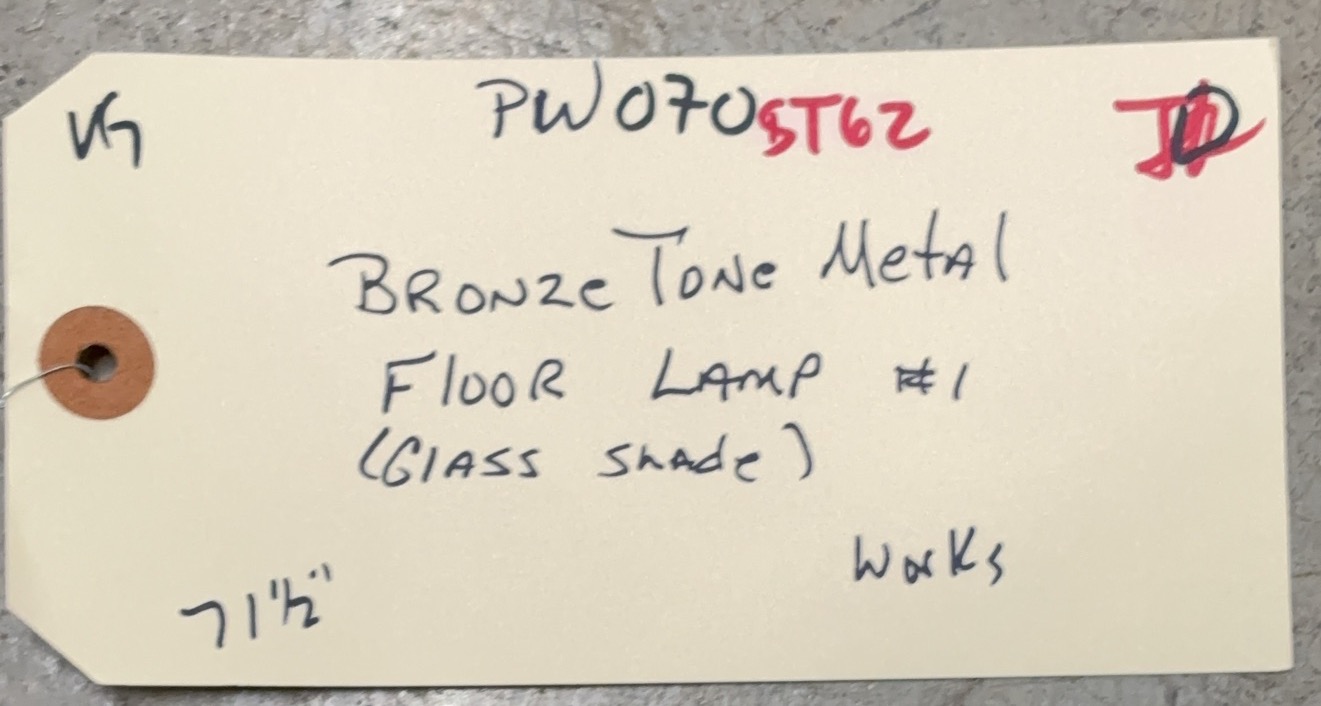 VG PW070 ST62 D
BRONZE TONE METAL
FLOOR LAMP #1
(GLASS SHADE)
WORKS
71 1/2"